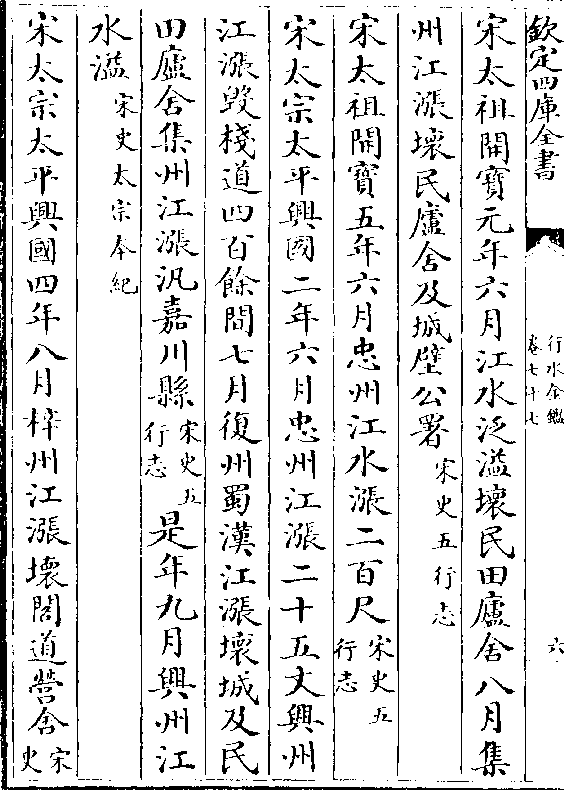 欽定四庫全書
行水金鑑
卷七十七
六
宋太祖開寶元年六月江水泛溢壞民田廬舍八月集
州江漲壞民廬舍及城壁公署宋史五行志
宋太祖開寶五年六月忠州江水漲二百尺宋史五行志
宋太宗太平興國二年六月忠州江漲二十五丈興州
江漲毀棧道四百餘間七月復州蜀漢江漲壞城及民
田廬舍集州江漲汎嘉川縣宋史五行志是年九月興州江
水溢宋史太宗本紀
宋太宗太平興國四年八月梓州江漲壞閣道營舍宋史